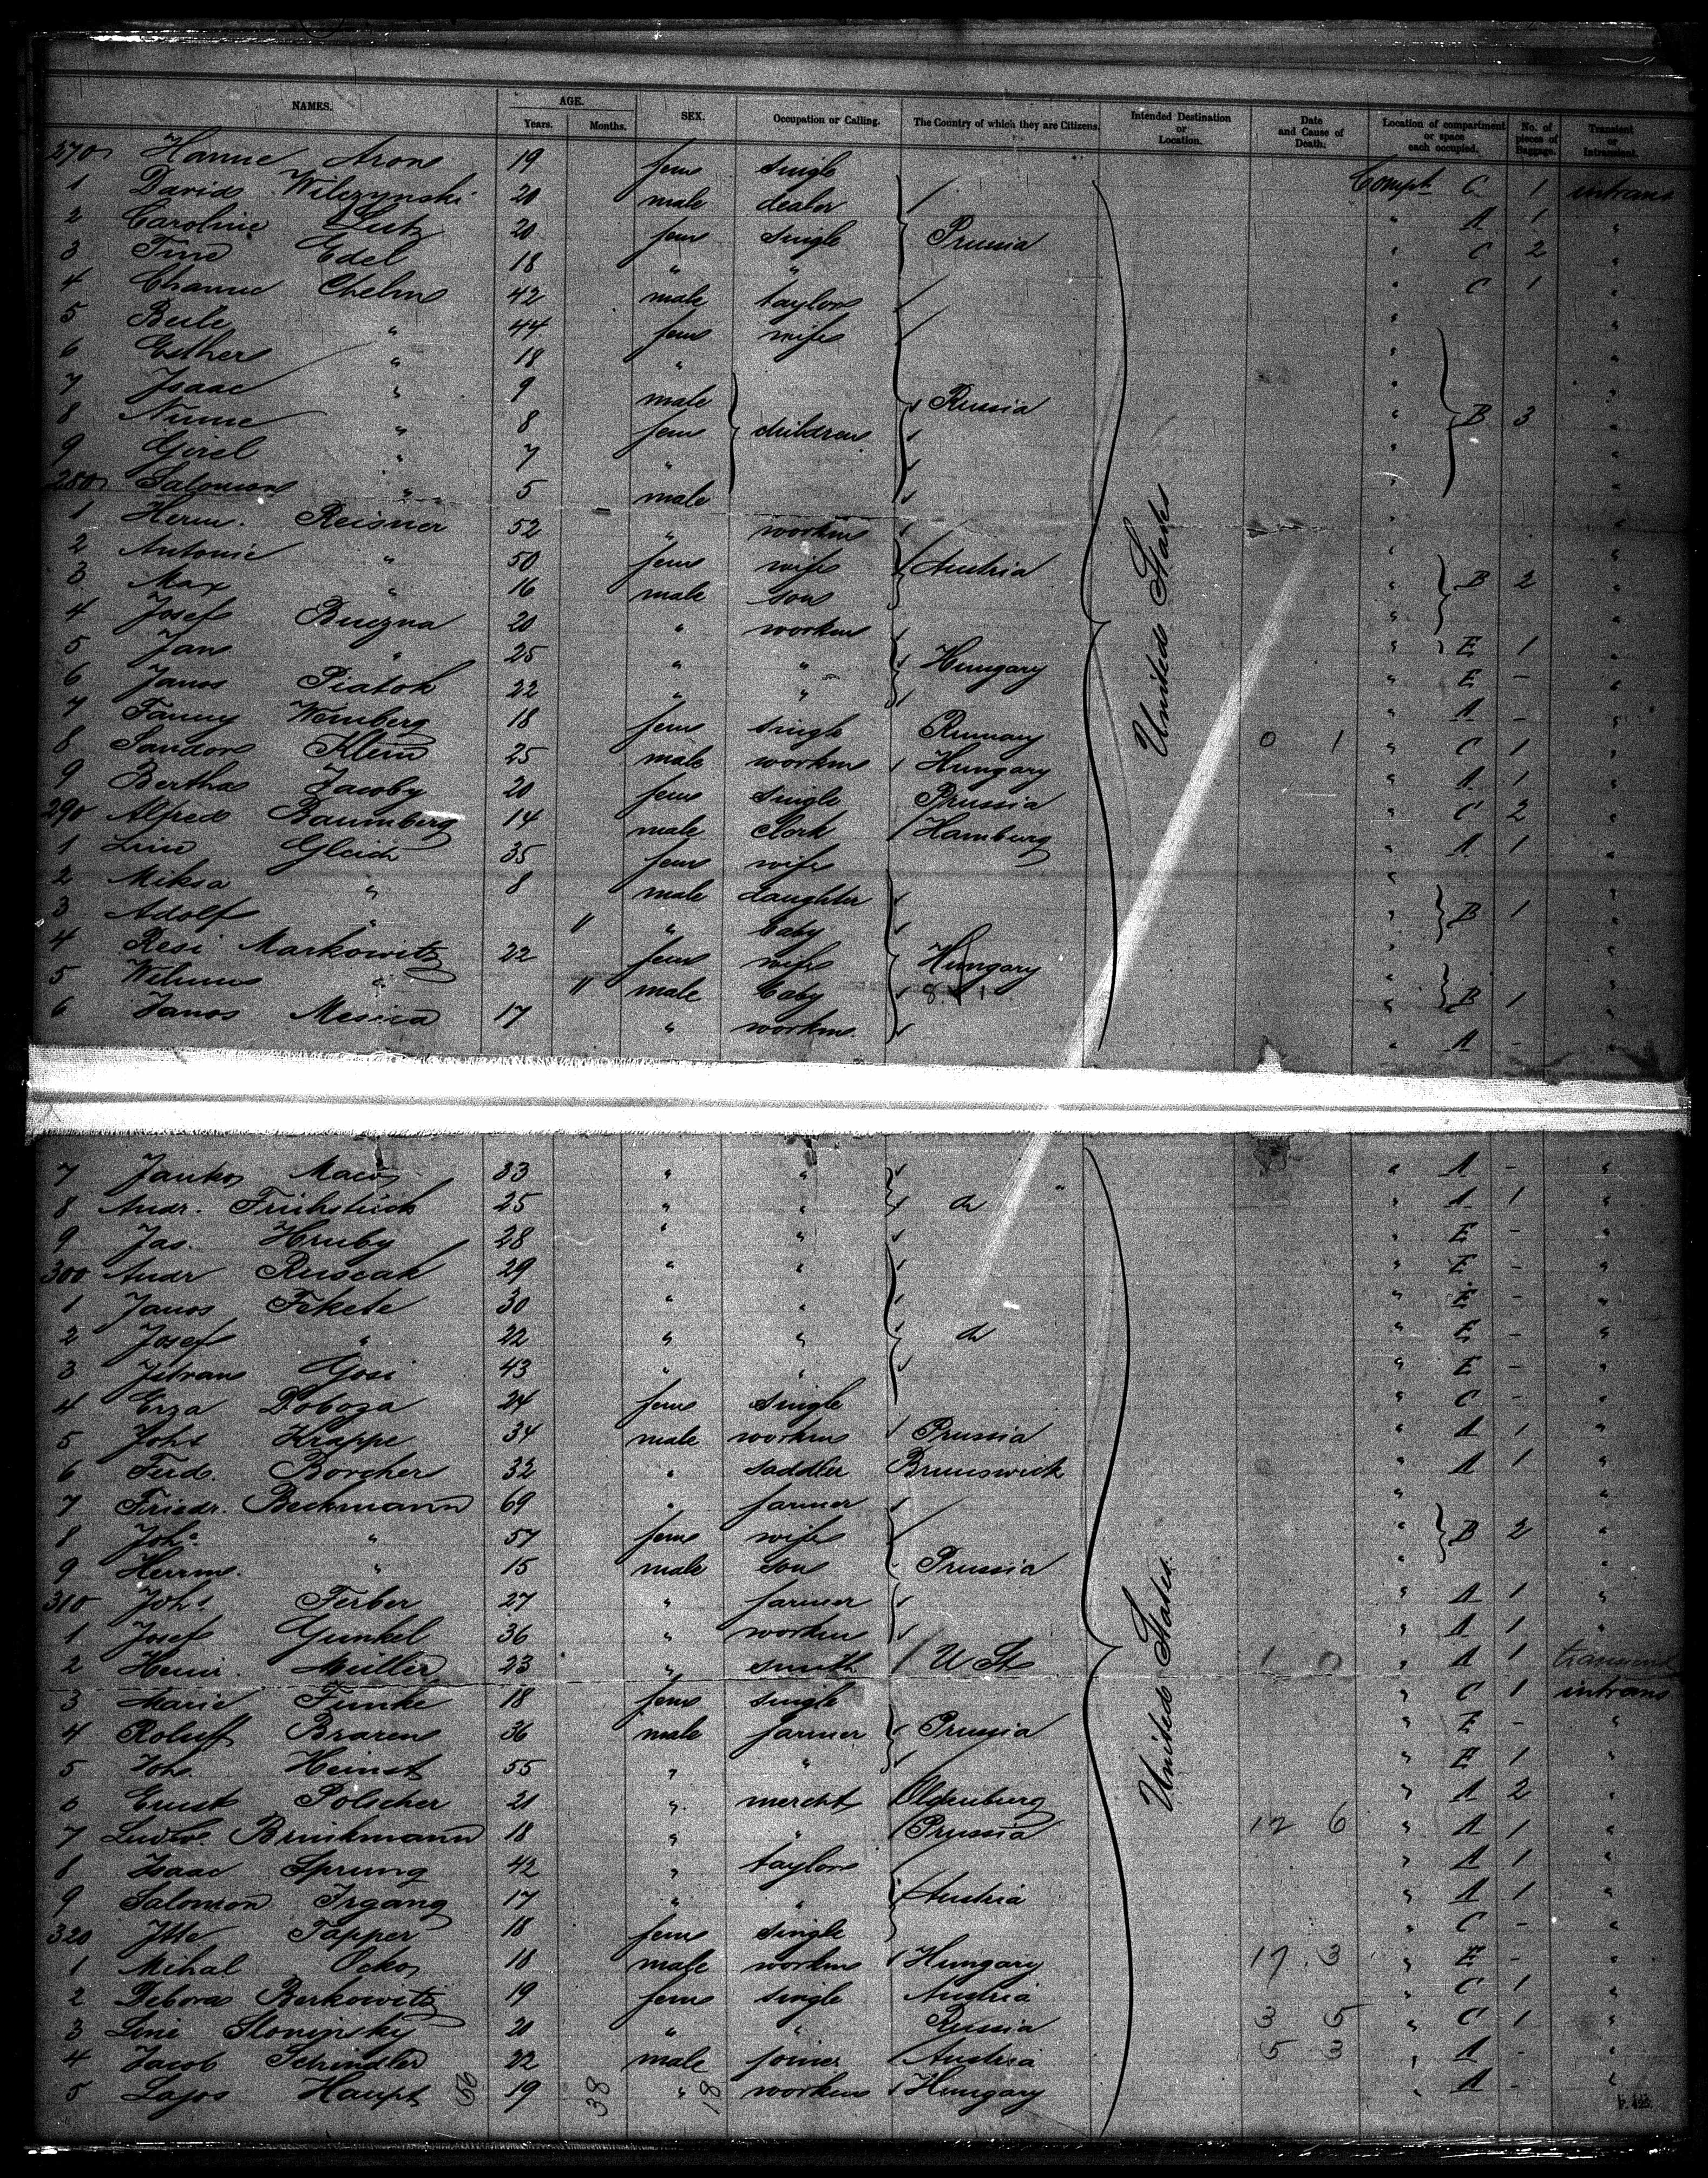 NAMES. AGE. Years. Months. SEX. Occupation or Calling. The Country of which they are Citizens. Intended Destination or Location. Date and Cause of Death. Location of compartment or space each occupied. No. of pieces of Baggage. Transient or Intransient.
270 Hanne Aron 19 fem single Compt C 1 intrans
1 David Wilczynski 20 male dealer " A 1 "
2 Caroline Lutz 20 fem single Prussia " C 2 "
3 Tine Edel 18 " " " C 1 "
4 Channe Chelm 42 male taylor " "
5 Beile " 44 fem wife " "
6 Esther " 18 " " "
7 Isaac " 9 male Russia " "
8 Nume " 8 fem children " B 3 "
9 Girel " 7 " " "
280 Salomon " 5 male " "
1 Herm. Reisner 52 " workm " "
2 Antonie " 50 fem wife Austria " B 2 "
3 Max " 16 male son " "
4 Josef Buczna 20 " workm " E 1 "
5 Jan " 25 " " Hungary " E - "
6 Janos Piatok 22 " " " A - "
7 Fanny Weinberg 18 fem single 0 1 " C 1 "
8 Sandor Klein 25 male workm Hungary " A 1 "
9 Bertha Jacoby 20 fem single Prussia " C 2 "
290 Alfred Baumberg 14 male clerk Hamburg " A 1 "
1 Line Gleich 35 fem wife " "
2 Miksa " 8 male daughter " B 1 "
3 Adolf " 11 " baby " "
4 Resi Markowitz 22 fem wife Hungary " "
5 " 11 male baby 8 1 " B 1 "
6 Janos 17 " workm. " A - "
United States
7 Janko Maco 33 " " " A - "
8 Andr. Frühstück 25 " " do " A 1 "
9 Jas. Hruby 28 " " " E - "
300 Andr Ruscak 29 " " " E - "
1 Janos Fekete 30 " " " E - "
2 Josef " 22 " " do " E - "
3 Gosi 43 " " " E - "
4 Erza Doboza 24 fem single " C - "
5 Johs Krappe 34 male workm Prussia " A 1 "
6 Ferd. Borcher 32 " saddler Brunswick " A 1 "
7 Friedr. Beckmann 69 " farmer " "
8 Joh. " 57 fem wife " B 2 "
9 Herrm. " 15 male son Prussia " "
310 Johs Ferber 27 " farmer " A 1 "
1 Josef Gunkel 36 " workm " A 1 "
2 Heinr. Müller 23 " smith U St 1 0 " A 1 transient
3 Marie Funke 18 fem single " C 1 intrans
4 Roluf Braren 36 male farmer Prussia " E - "
5 Joh. Heinst 55 " " " E 1 "
6 Ernst Polscher 21 " mercht Oldenburg " A 2 "
7 Ludw Brinkmann 18 " " Prussia 12 6 " A 1 "
8 Isaac Sprung 42 " taylor " A 1 "
9 Salomon Irgang 17 " " Austria " A 1 "
320 Itte Tapper 18 fem single " C - "
1 Mihal Ocko 18 male workm Hungary 17 3 " E - "
2 Debora Berkowitz 19 fem single Austria " C 1 "
3 Line Slovinsky 20 " " Russia 3 5 " C 1 "
4 Jacob Schindler 22 male joiner Austria 5 3 " A - "
5 Lajos Haupt 56 19 38 " 18 workm Hungary " A - "
United States.